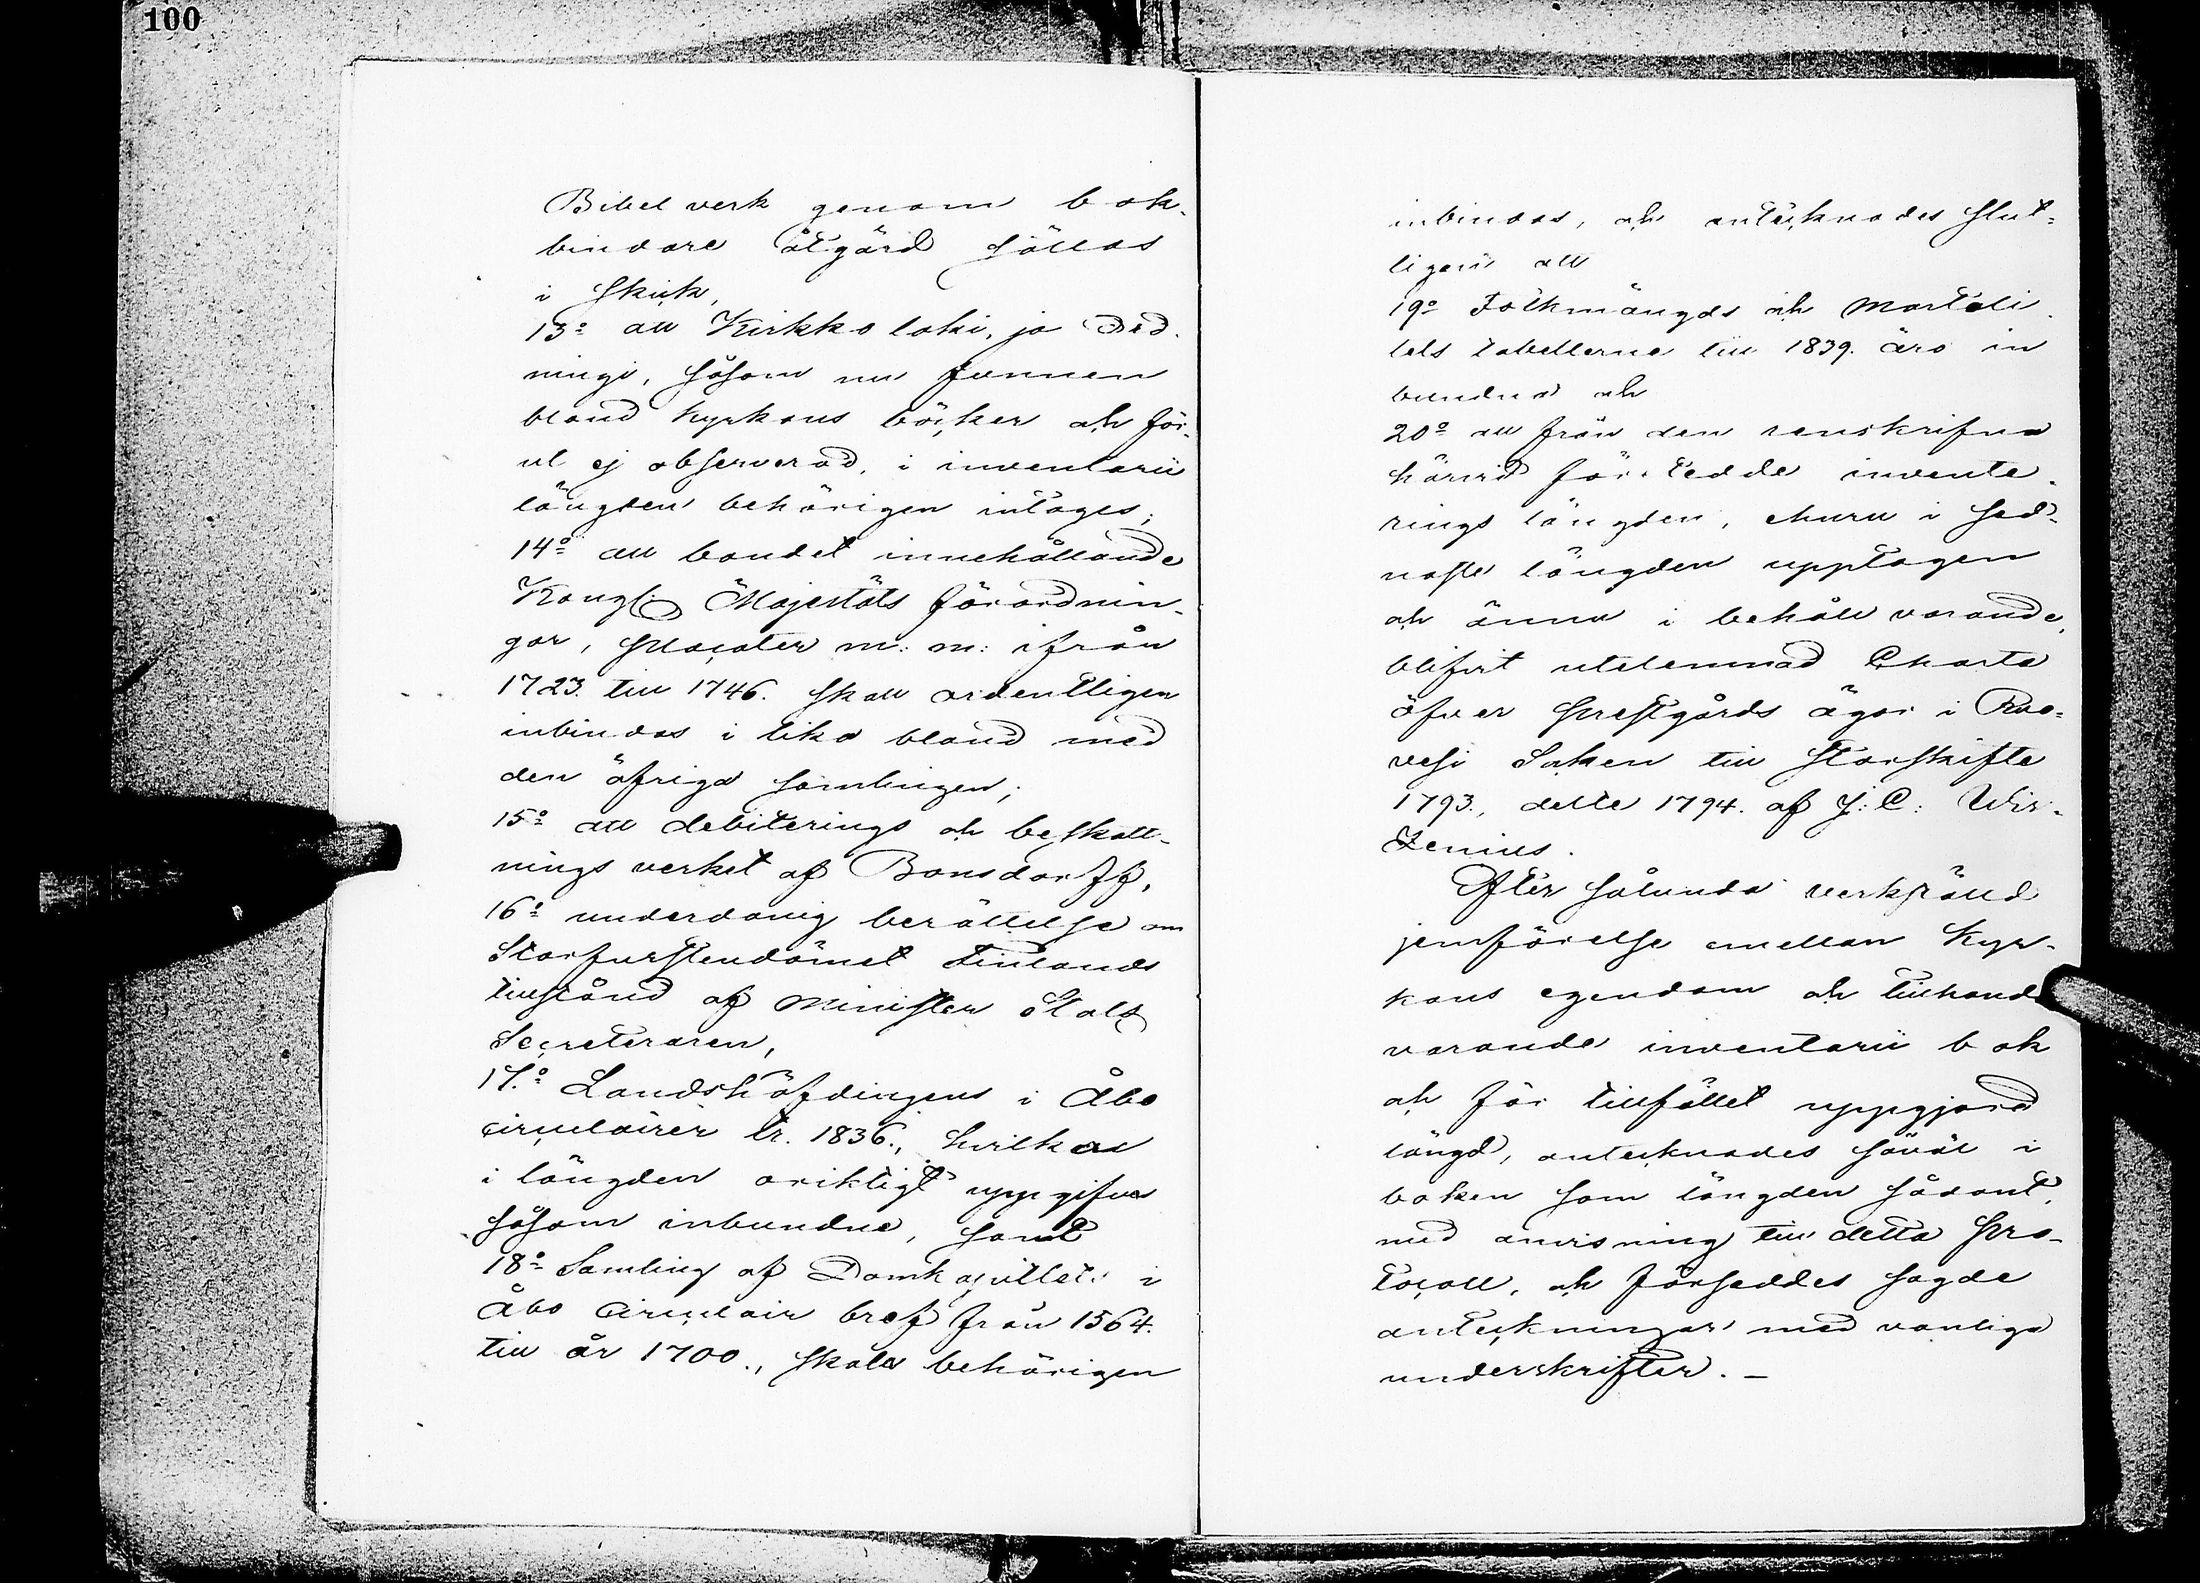 100
Bibel verk genom bok-
bindare åtgärd sättas
i skick,
13:o att Kirkko laki, ja Ord-
ningi, såsom nu funnen
bland kyrkans böcker och för-
ut ej observerad, i inventarii
längden behörigen intages;
14:o att bandet innehållande
Kongl. Majestäts förordnin-
gar, placater m: m: ifrån
1723. till 1746. skall ordentligen
inbindas i lika bland med
den öfriga samlingen;
15:o att debiterings och beskatt-
nings verket af Bonsdorff,
16:o underdånig berättelse om
Storfurstendömet Finlands
tillstånd af Minister Stats
Secreteraren,
17:o Landshöfdingens i Åbo
circulairer tr. 1836., hvilka
i längden oriktigt uppgifvas
såsom inbundne, samt
18:o Samling af Domkapitlets i
Åbo Circulair bref från 1564.
till år 1700., skola behörigen
inbindas, och antecknades slut-
ligen att
19:o Folkmängds och Mortali-
tets tabellerne till 1839. äro in
bundna och
20:o att från den renskrifna
härvid företedde invente-
rings längden, ehuru i sed-
naste längden upptagen
och ännu i behåll varande,
blifvit utelemnad Charta
öfver prestgårds ägor i Ruo-
vesi Soken till Storskifte
1793., dette 1794. af J: C: Wir-
zenius.
Efter sålunda verkställd
jemförelse emellan Kyr-
kans egendom och tillhanda
varande inventarii bok
och för tillfället uppgjord
längd, antecknades såväl i
boken som längden sådant,
med anvisning till detta pro-
tocoll, och förseddes sagde
anteckningar med vanliga
underskrifter. –